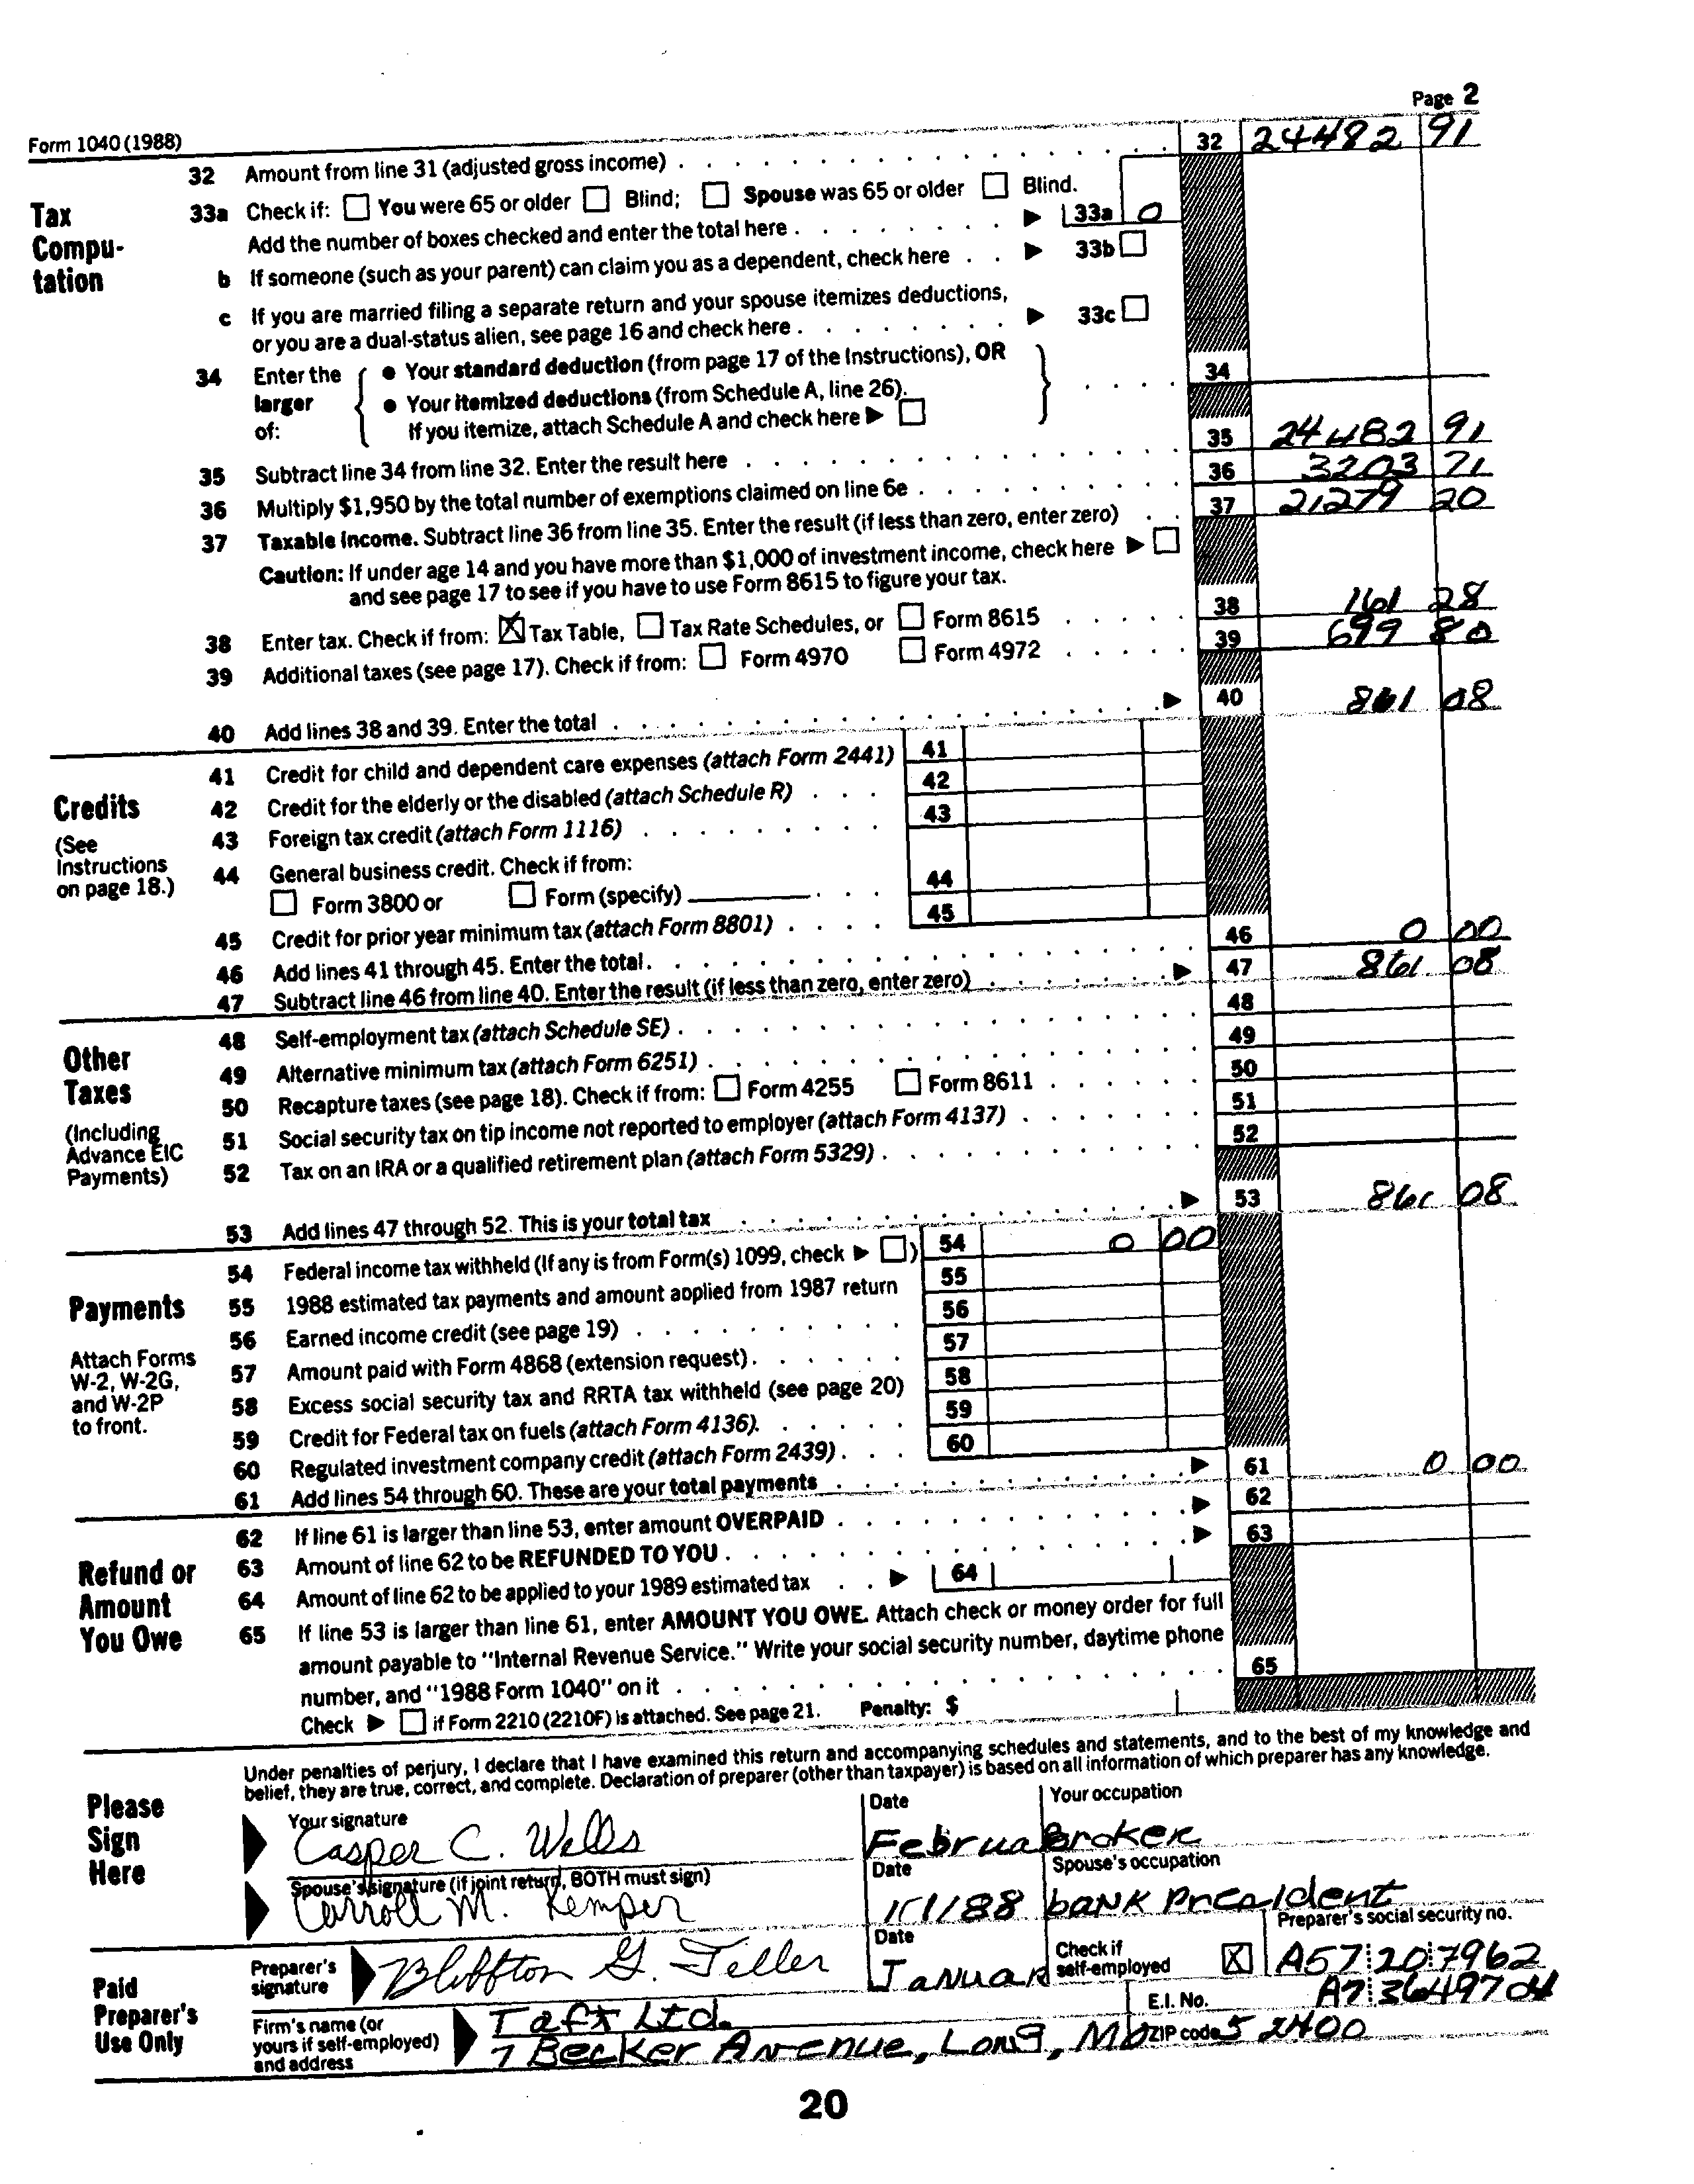 Page 2
Form 1040 (1988)
32 Amount from line 31 (adjusted gross income) 32 24482 91
Tax Compu- tation
33a Check if: You were 65 or older Blind; Spouse was 65 or older Blind.
Add the number of boxes checked and enter the total here 33a 0
b If someone (such as your parent) can claim you as a dependent, check here 33b
c If you are married filing a separate return and your spouse itemizes deductions,
or you are a dual-status alien, see page 16 and check here 33c
34 Enter the larger of: { • Your standard deduction (from page 17 of the Instructions), OR } 34
• Your itemized deductions (from Schedule A, line 26).
If you itemize, attach Schedule A and check here
35 Subtract line 34 from line 32. Enter the result here 35 24482 91
36 Multiply $1,950 by the total number of exemptions claimed on line 6e 36 3203 71
37 Taxable income. Subtract line 36 from line 35. Enter the result (if less than zero, enter zero) 37 21279 20
Caution: If under age 14 and you have more than $1,000 of investment income, check here
and see page 17 to see if you have to use Form 8615 to figure your tax.
38 Enter tax. Check if from: X Tax Table, Tax Rate Schedules, or Form 8615 38 161 28
39 Additional taxes (see page 17). Check if from: Form 4970 Form 4972 39 699 80
40 Add lines 38 and 39. Enter the total 40 861 08
Credits
(See Instructions on page 18.)
41 Credit for child and dependent care expenses (attach Form 2441) 41
42 Credit for the elderly or the disabled (attach Schedule R) 42
43 Foreign tax credit (attach Form 1116) 43
44 General business credit. Check if from:
Form 3800 or Form (specify) 44
45 Credit for prior year minimum tax (attach Form 8801) 45
46 Add lines 41 through 45. Enter the total 46 0 00
47 Subtract line 46 from line 40. Enter the result (if less than zero, enter zero) 47 861 08
Other Taxes
(Including Advance EIC Payments)
48 Self-employment tax (attach Schedule SE) 48
49 Alternative minimum tax (attach Form 6251) 49
50 Recapture taxes (see page 18). Check if from: Form 4255 Form 8611 50
51 Social security tax on tip income not reported to employer (attach Form 4137) 51
52 Tax on an IRA or a qualified retirement plan (attach Form 5329) 52
53 Add lines 47 through 52. This is your total tax 53 861 08
Payments
Attach Forms W-2, W-2G, and W-2P to front.
54 Federal income tax withheld (If any is from Form(s) 1099, check ) 54 0 00
55 1988 estimated tax payments and amount applied from 1987 return 55
56 Earned income credit (see page 19) 56
57 Amount paid with Form 4868 (extension request) 57
58 Excess social security tax and RRTA tax withheld (see page 20) 58
59 Credit for Federal tax on fuels (attach Form 4136) 59
60 Regulated investment company credit (attach Form 2439) 60
61 Add lines 54 through 60. These are your total payments 61 0 00
Refund or Amount You Owe
62 If line 61 is larger than line 53, enter amount OVERPAID 62
63 Amount of line 62 to be REFUNDED TO YOU 63
64 Amount of line 62 to be applied to your 1989 estimated tax 64
65 If line 53 is larger than line 61, enter AMOUNT YOU OWE. Attach check or money order for full
amount payable to "Internal Revenue Service." Write your social security number, daytime phone
number, and "1988 Form 1040" on it 65
Check if Form 2210 (2210F) is attached. See page 21. Penalty: $
Please Sign Here
Under penalties of perjury, I declare that I have examined this return and accompanying schedules and statements, and to the best of my knowledge and
belief, they are true, correct, and complete. Declaration of preparer (other than taxpayer) is based on all information of which preparer has any knowledge.
Your signature Date Your occupation
Casper C. Wells Februa Broker
Spouse's signature (if joint return, BOTH must sign) Date Spouse's occupation
Carroll M. Kemper 1/1/88 bank President
Paid Preparer's Use Only
Preparer's signature Date Check if self-employed Preparer's social security no.
Bluffton G. Teller Januar X A57 20 7962
Firm's name (or yours if self-employed) and address
Taft Ltd. E.I. No. A7 3649704
7 Becker Avenue, Long, MO ZIP code 52400
20